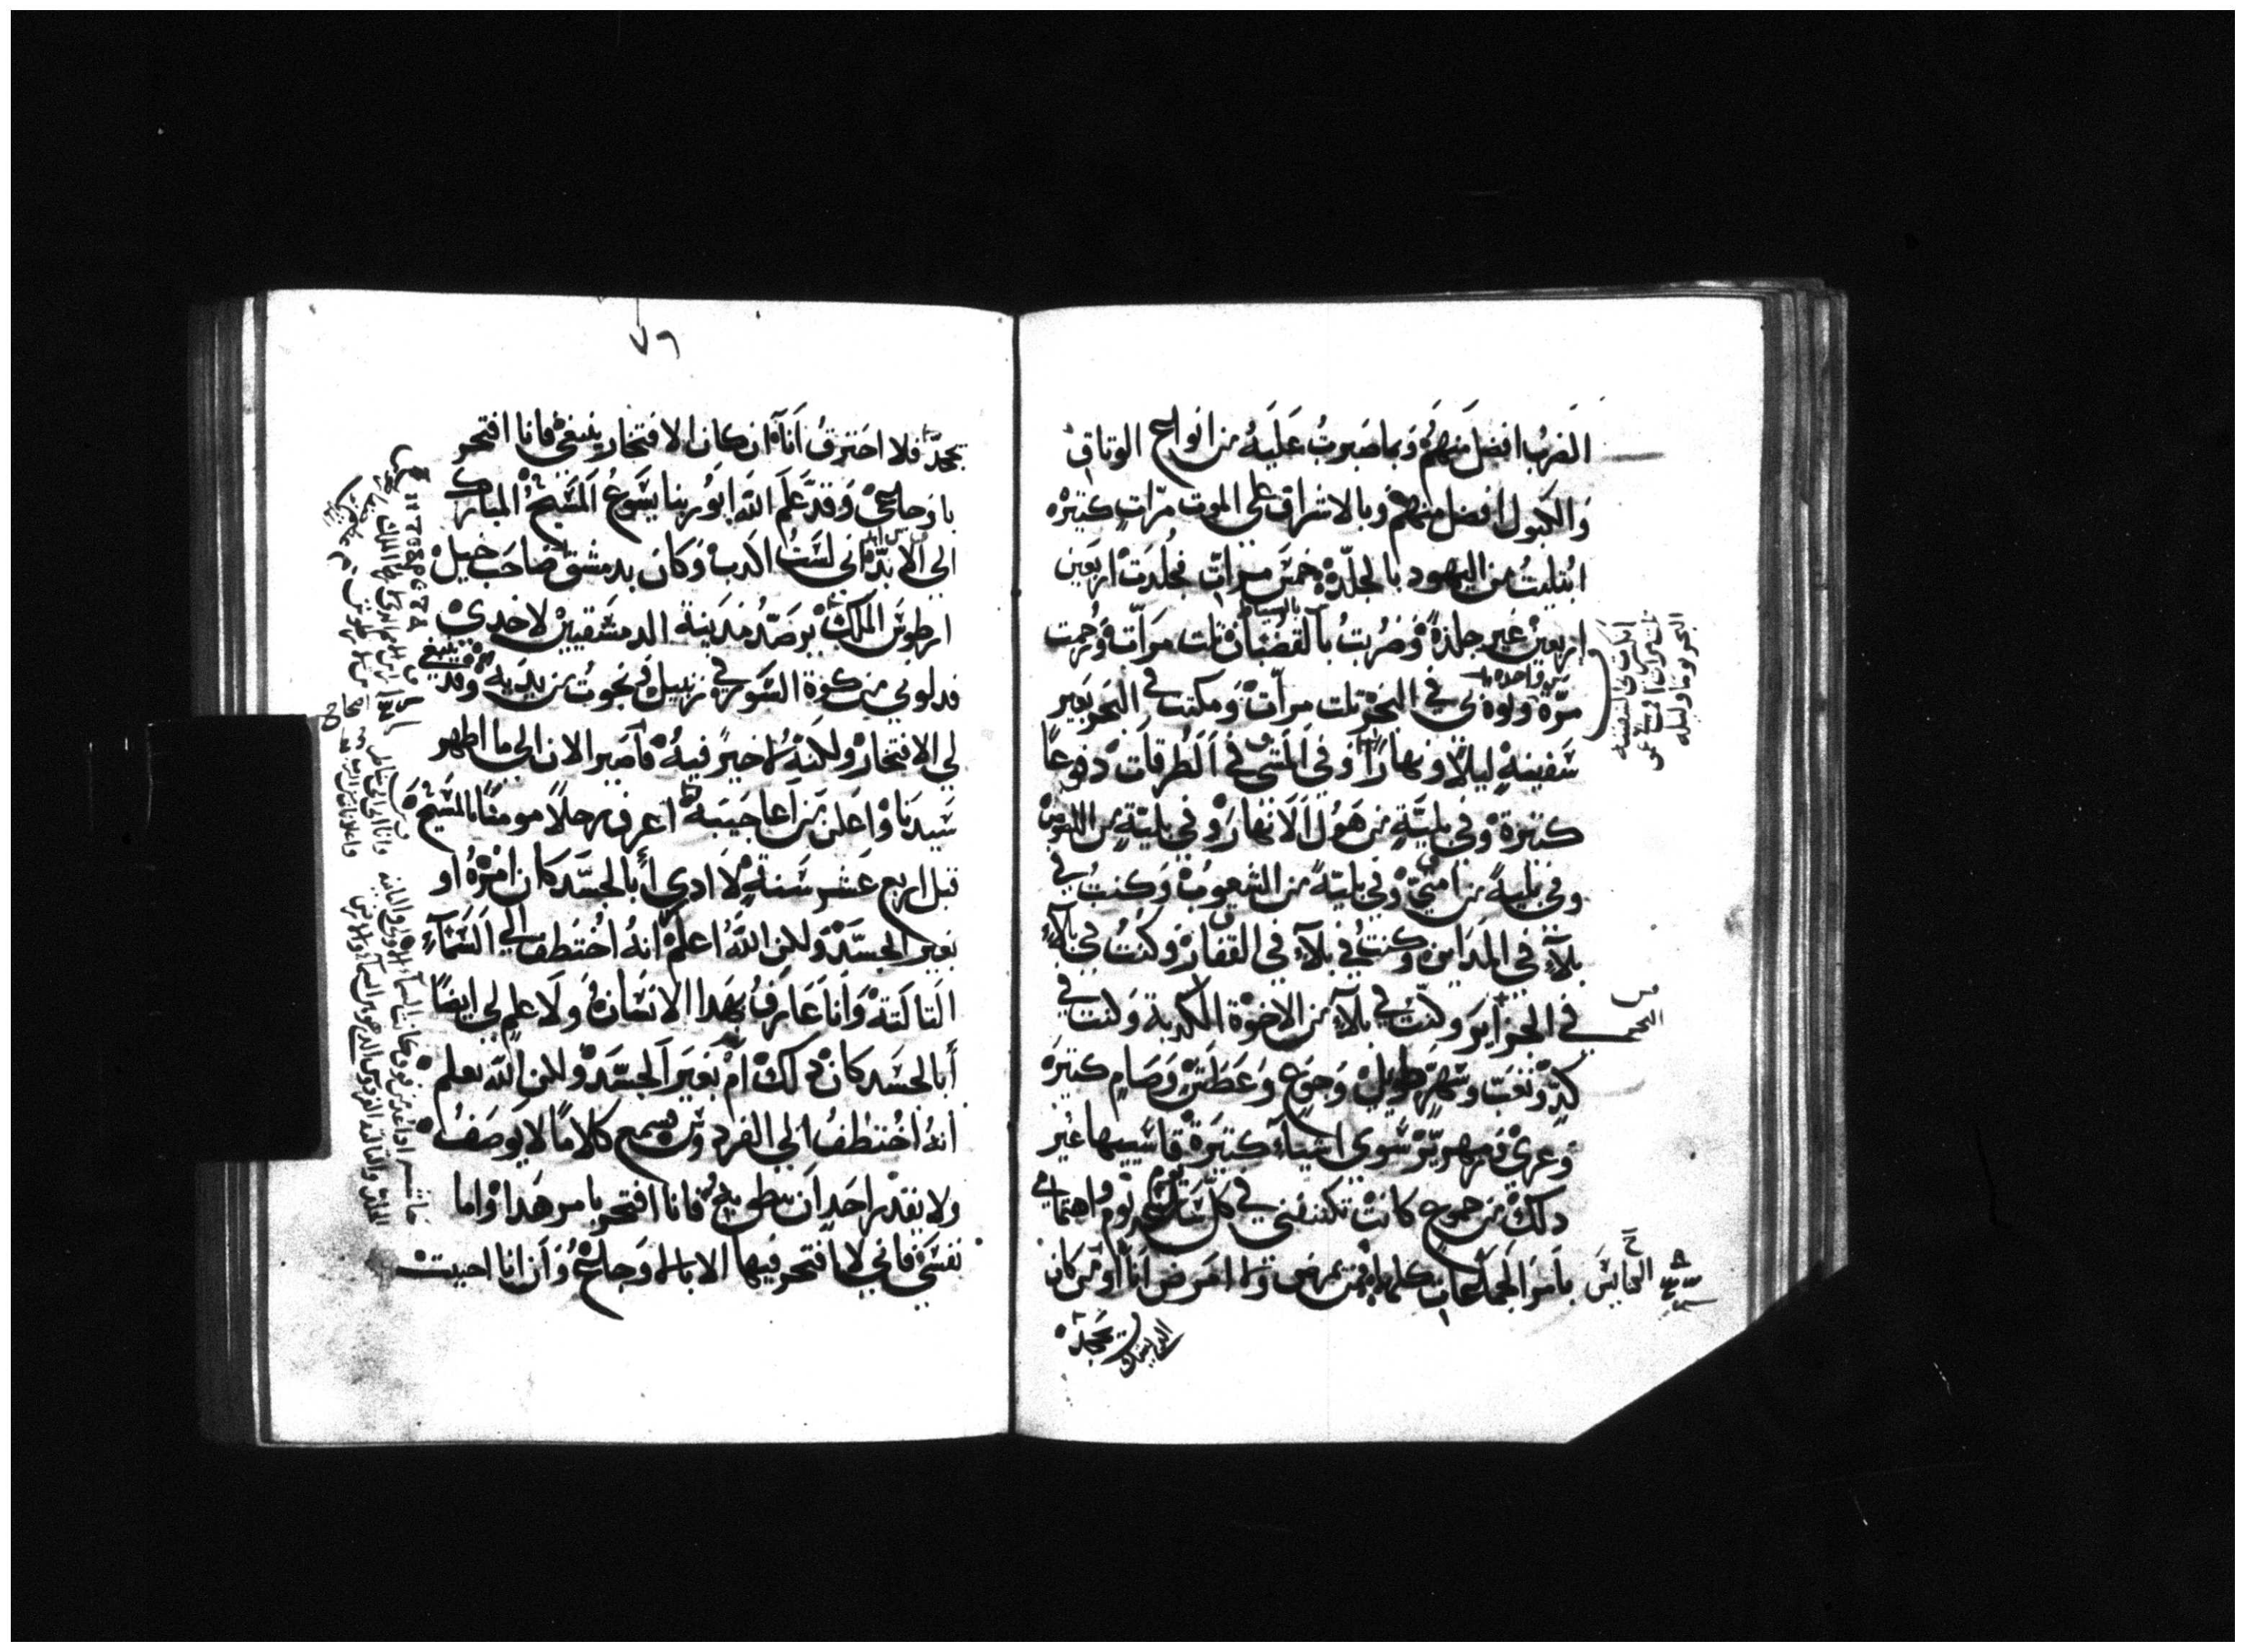 الضرب افضل منهم وبما صبرت عليه من انواع الوتاق
والكبول افضل منهم وبالاشراف على الموت مرّات كتيره
ابتليت من اليهود بالجلدة خمس مرات فجلدت اربعين
اربعين غير جلدة وضربت بالقضبان تلت مرات ورجمت
مرّة في البحر تلت مرات ومكتت في البحر بغير
سفينة ليلا ونهارا وفي المشي في الطرقات دفوعا
كتيرة وفي بلية من هول الانهار وفي بلية من اللصوص
وفي بلية من امتي وفي بلية من الشعوب وكنت في
بلاء في المداين وكنت في بلاء في القفار وكنت في بلاء
في الجزاير وكنت في بلاء من الاخوة الكدبة وكنت في
كدّ وتعب وسهر طويل وجوع وعطش وصيام كتيرة
وعري وزمهرير سوى اشياء كتيرة قاسيتها غير
دلك من جموع كانت تكتنفني في كل يوم واهتمامي
بامر الجماعات كلها فمن يمرض ولا امرض انا او من كان
يجد
٧٦
يجد فلا احترق انا ان كان الافتخار ينبغي فانا افتخر
باوجاعي وقد علم الله ابو ربنا يسوع المسيح المبارك
الى الابد اني لست اكدب وكان بدمشق صاحب خيل
ارطوس الملك يرصد مدينة الدمشقيين لاخدي
فدلوني من كوة السور في زنبيل فنجوت من يديه وقد ينبغي
لي الافتخار ولكنه لا خير فيه فاصير الان الى ما اظهر
سيدنا واعلن من اعاجيبه اعرف رجلا مومنا بالمسيح
قبل اربع عشر سنة لا ادري أبالجسد كان امره او
بغير الجسد ولكن الله اعلم انه اختطف الى السماء
التالتة وانا عارف بهدا الانسان ولا علم لي ايضا
أبالجسد كان دلك ام بغير الجسد ولكن الله يعلم
انه اختطف الى الفردوس فسمع كلاما لا يوصف
ولا يقدر احد ان ينطق به فانا افتخر بامر هدا واما
نفسي فاني لا افتخر فيها الا باوجاعي وان انا احببت